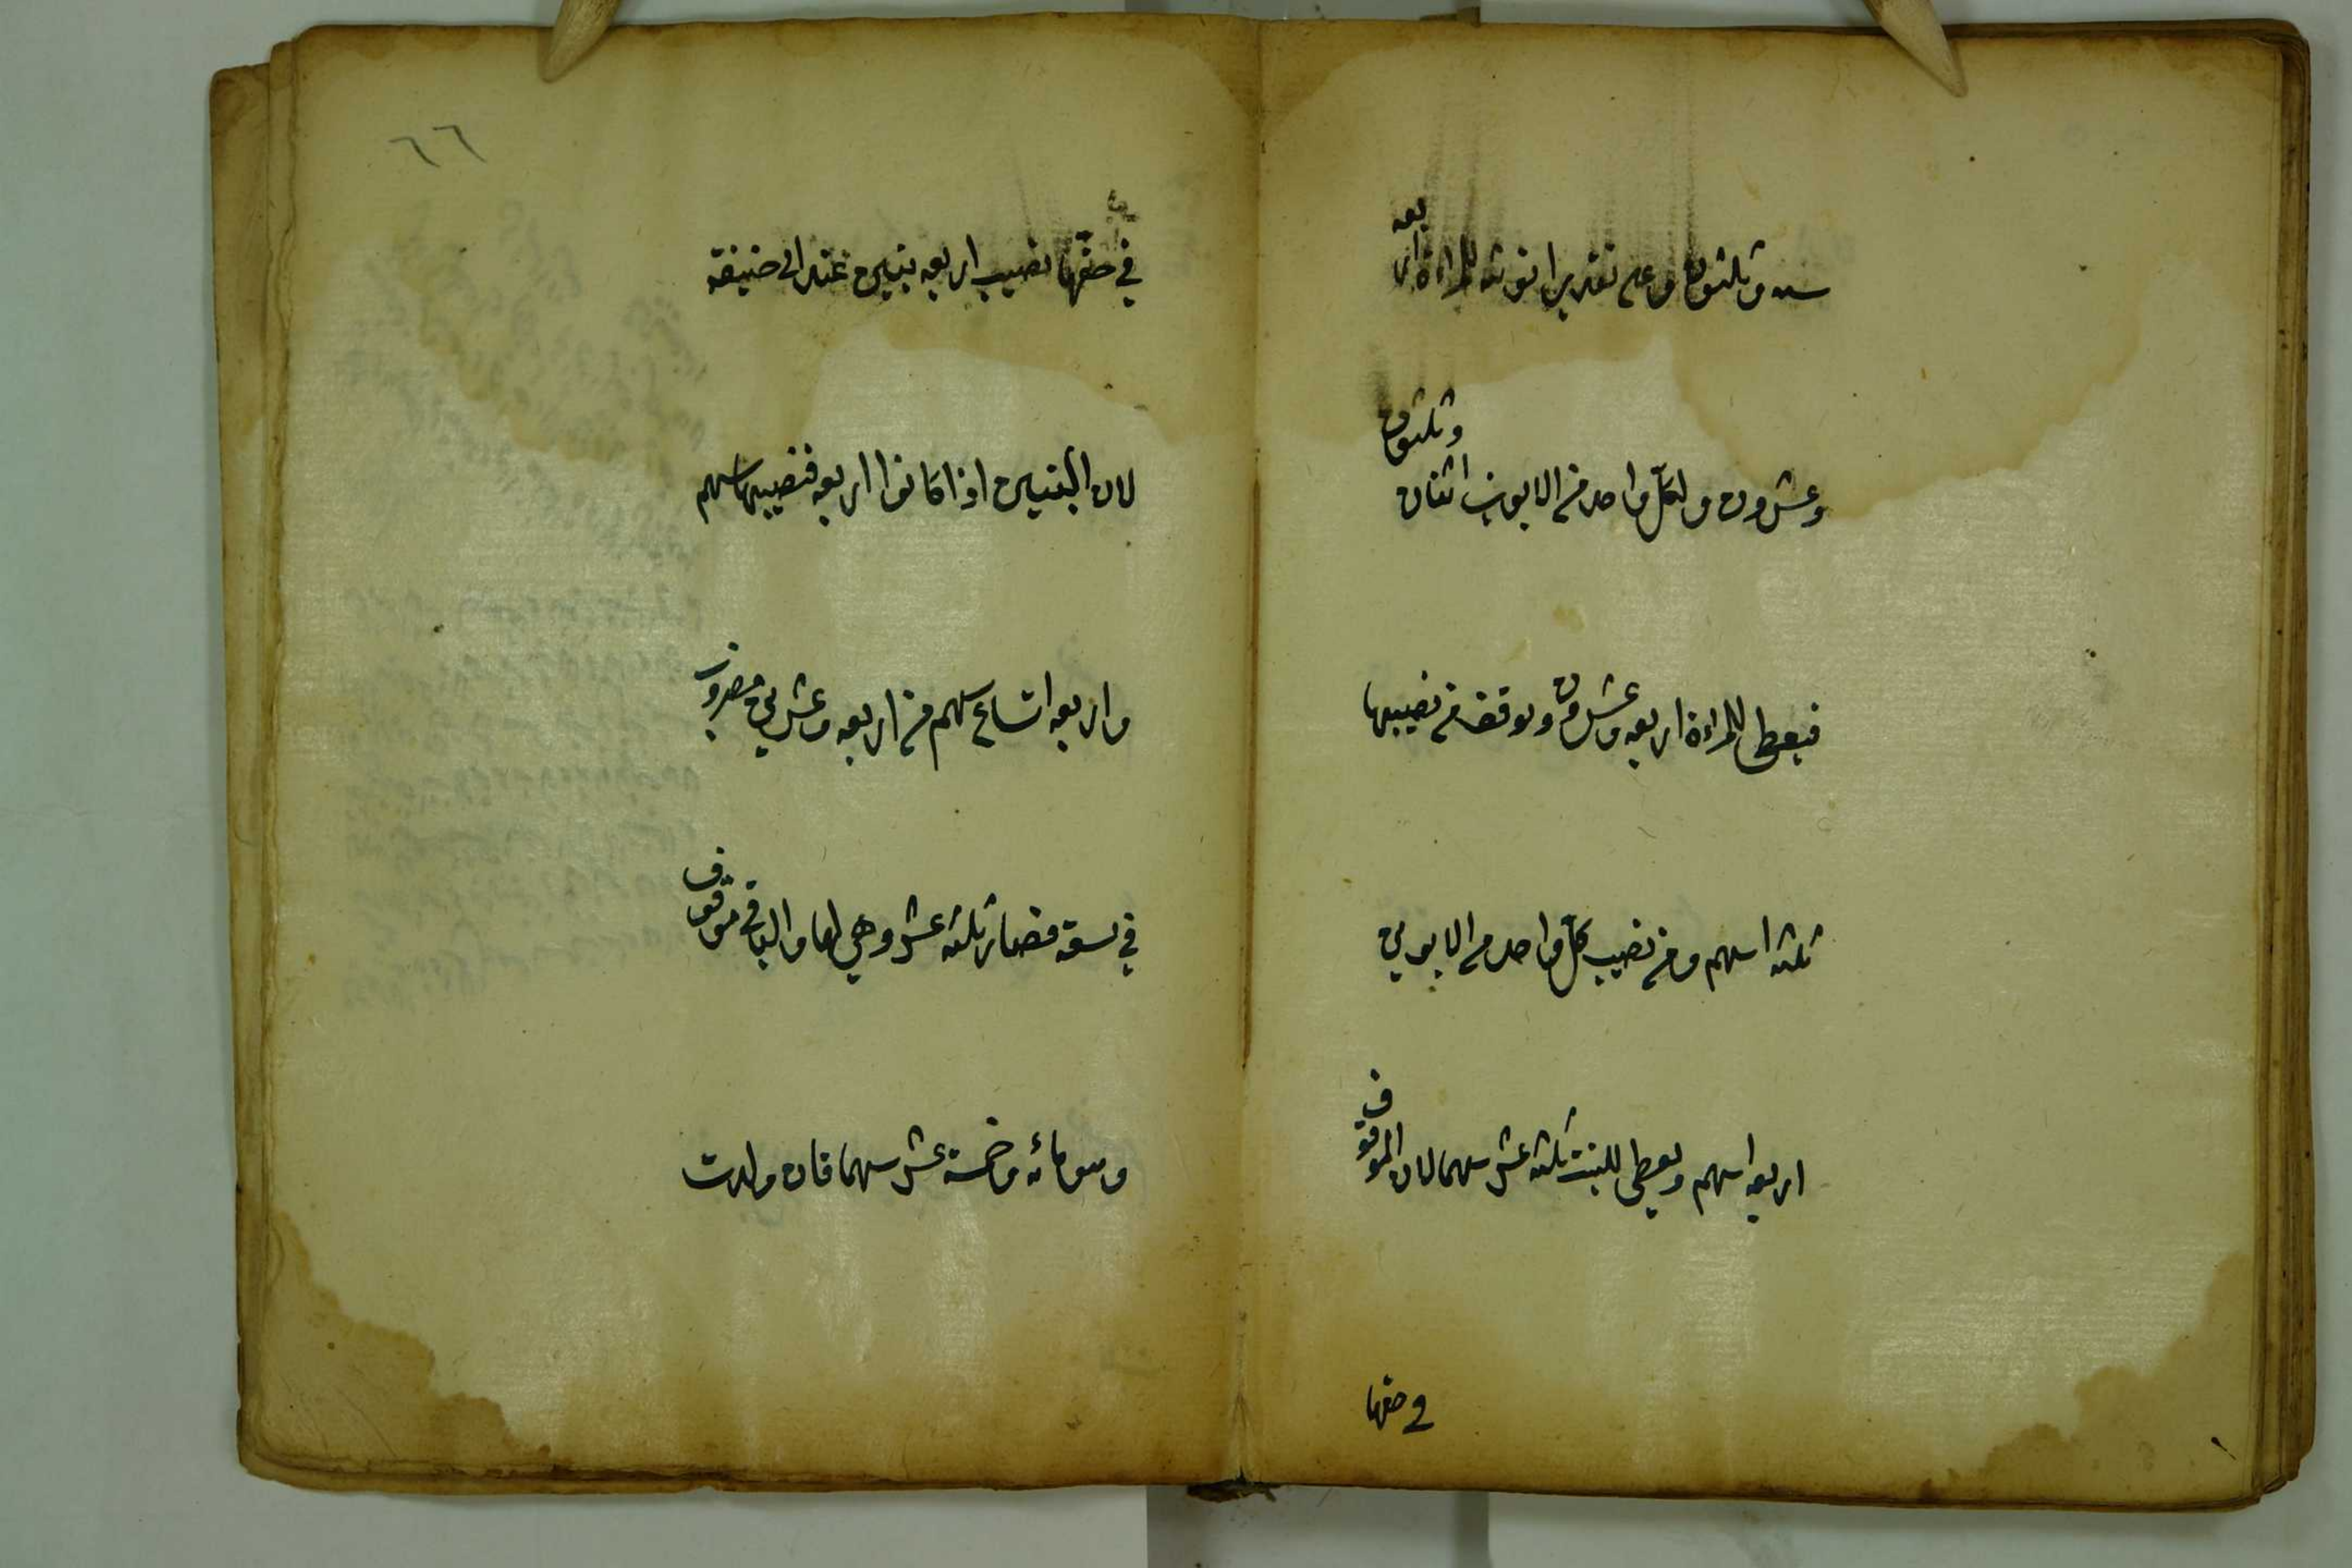 ستة وثلثون وعلى تقدير انوثته للمراءة اربعة
وعشرون ولكل واحد من الابوين اثنان وثلثون
فيعطى للمراءة اربعة وعشرون ويوقف من نصيبها
ثلثة اسهم ومن نصيب كل واحد من الابوين
اربعة اسهم ويعطى للبنت ثلثة عشر سهما لان الموقوف
في حقها
٦٦
في حقها نصيب اربعة بنين عند ابى حنيفة
لان البنين اذا كانوا اربعة فنصيبها سهم
واربعة اتساع سهم من اربعة وعشرين مضروب
في تسعة فصار ثلثة عشر وهي لها والباقي موقوف
وهو مائة وخمسة عشر سهما فان ولدت